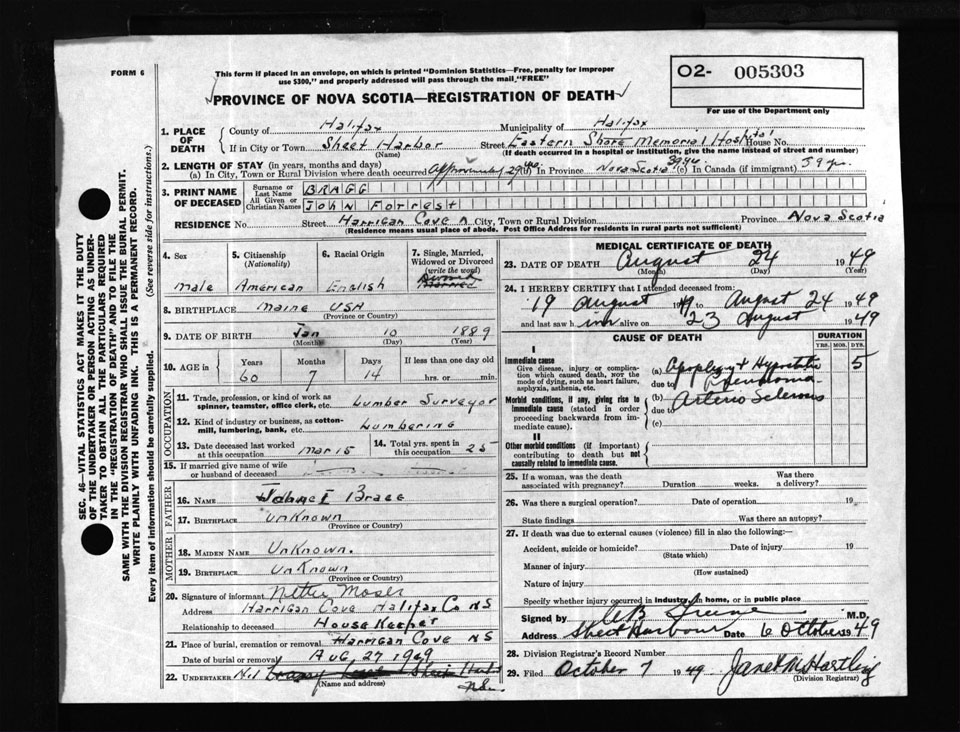 FORM 6
This form if placed in an envelope, on which is printed "Dominion Statistics—Free, penalty for improper
use $300," and properly addressed will pass through the mail "FREE"
PROVINCE OF NOVA SCOTIA—REGISTRATION OF DEATH
O2- 005303
For use of the Department only
SEC. 46—VITAL STATISTICS ACT MAKES IT THE DUTY
OF THE UNDERTAKER OR PERSON ACTING AS UNDER-
TAKER TO OBTAIN ALL THE PARTICULARS REQUIRED
IN THE "REGISTRATION OF DEATH" AND TO FILE THE
SAME WITH THE DIVISION REGISTRAR WHO SHALL ISSUE THE BURIAL PERMIT.
WRITE PLAINLY WITH UNFADING INK. THIS IS A PERMANENT RECORD.
Every item of information should be carefully supplied. (See reverse side for instructions.)
1. PLACE OF DEATH
County of Halifax Municipality of Halifax
If in City or Town Sheet Harbor Street Eastern Shore Memorial Hospital House No.
(Name) (If death occurred in a hospital or institution, give the name instead of street and number)
2. LENGTH OF STAY (in years, months and days)
(a) In City, Town or Rural Division where death occurred (b) In Province Nova Scotia (c) In Canada (if immigrant) 39 yrs.
3. PRINT NAME OF DECEASED
Surname or Last Name BRAGG
All Given or Christian Names JOHN FORREST
RESIDENCE No. Street Harrigan Cove City, Town or Rural Division Province Nova Scotia
(Residence means usual place of abode. Post Office Address for residents in rural parts not sufficient)
4. Sex 5. Citizenship (Nationality) 6. Racial Origin 7. Single, Married, Widowed or Divorced (write the word)
male American English
8. BIRTHPLACE Maine USA
(Province or Country)
9. DATE OF BIRTH Jan 10 1889
(Month) (Day) (Year)
10. AGE in Years Months Days If less than one day old
60 7 14 hrs. or min.
OCCUPATION
11. Trade, profession, or kind of work as
spinner, teamster, office clerk, etc. Lumber Surveyor
12. Kind of industry or business, as cotton-
mill, lumbering, bank, etc. Lumbering
13. Date deceased last worked at this occupation Mar 15 14. Total yrs. spent in this occupation 25
15. If married give name of wife
or husband of deceased
FATHER
16. NAME Bragg
17. BIRTHPLACE Unknown
(Province or Country)
MOTHER
18. MAIDEN NAME Unknown.
19. BIRTHPLACE Unknown
(Province or Country)
20. Signature of informant Nettie Moser
Address Harrigan Cove Halifax Co NS
Relationship to deceased House Keeper
21. Place of burial, cremation or removal Harrigan Cove NS
Date of burial or removal Aug, 27 1949
22. UNDERTAKER Nil
(Name and address)
MEDICAL CERTIFICATE OF DEATH
23. DATE OF DEATH August 24 1949
(Month) (Day) (Year)
24. I HEREBY CERTIFY that I attended deceased from:
19 August 49 to August 24 1949
and last saw him alive on 23 August 1949
CAUSE OF DEATH DURATION
YRS. MOS. DYS.
I
Immediate cause
Give disease, injury or complica-
tion which caused death, NOT the
mode of dying, such as heart failure,
asphyxia, asthenia, etc.
(a) Apoplexy + Hypostatic 5
due to Pneumonia
Morbid conditions, if any, giving rise to
immediate cause (stated in order
proceeding backwards from im-
mediate cause).
(b) Arterio Sclerosis
due to
(c)
II
Other morbid conditions (if important)
contributing to death but not
causally related to immediate cause.
25. If a woman, was the death
associated with pregnancy? Duration weeks. Was there a delivery?
26. Was there a surgical operation? Date of operation 19
State findings Was there an autopsy?
27. If death was due to external causes (violence) fill in also the following:
Accident, suicide or homicide? Date of injury 19
(State which)
Manner of injury
(How sustained)
Nature of injury
Specify whether injury occurred in industry, in home, or in public place
Signed by M.D.
Address Sheet Harbour Date 6 October 1949
28. Division Registrar's Record Number
29. Filed October 7 1949 Janet M Hartling
(Division Registrar)